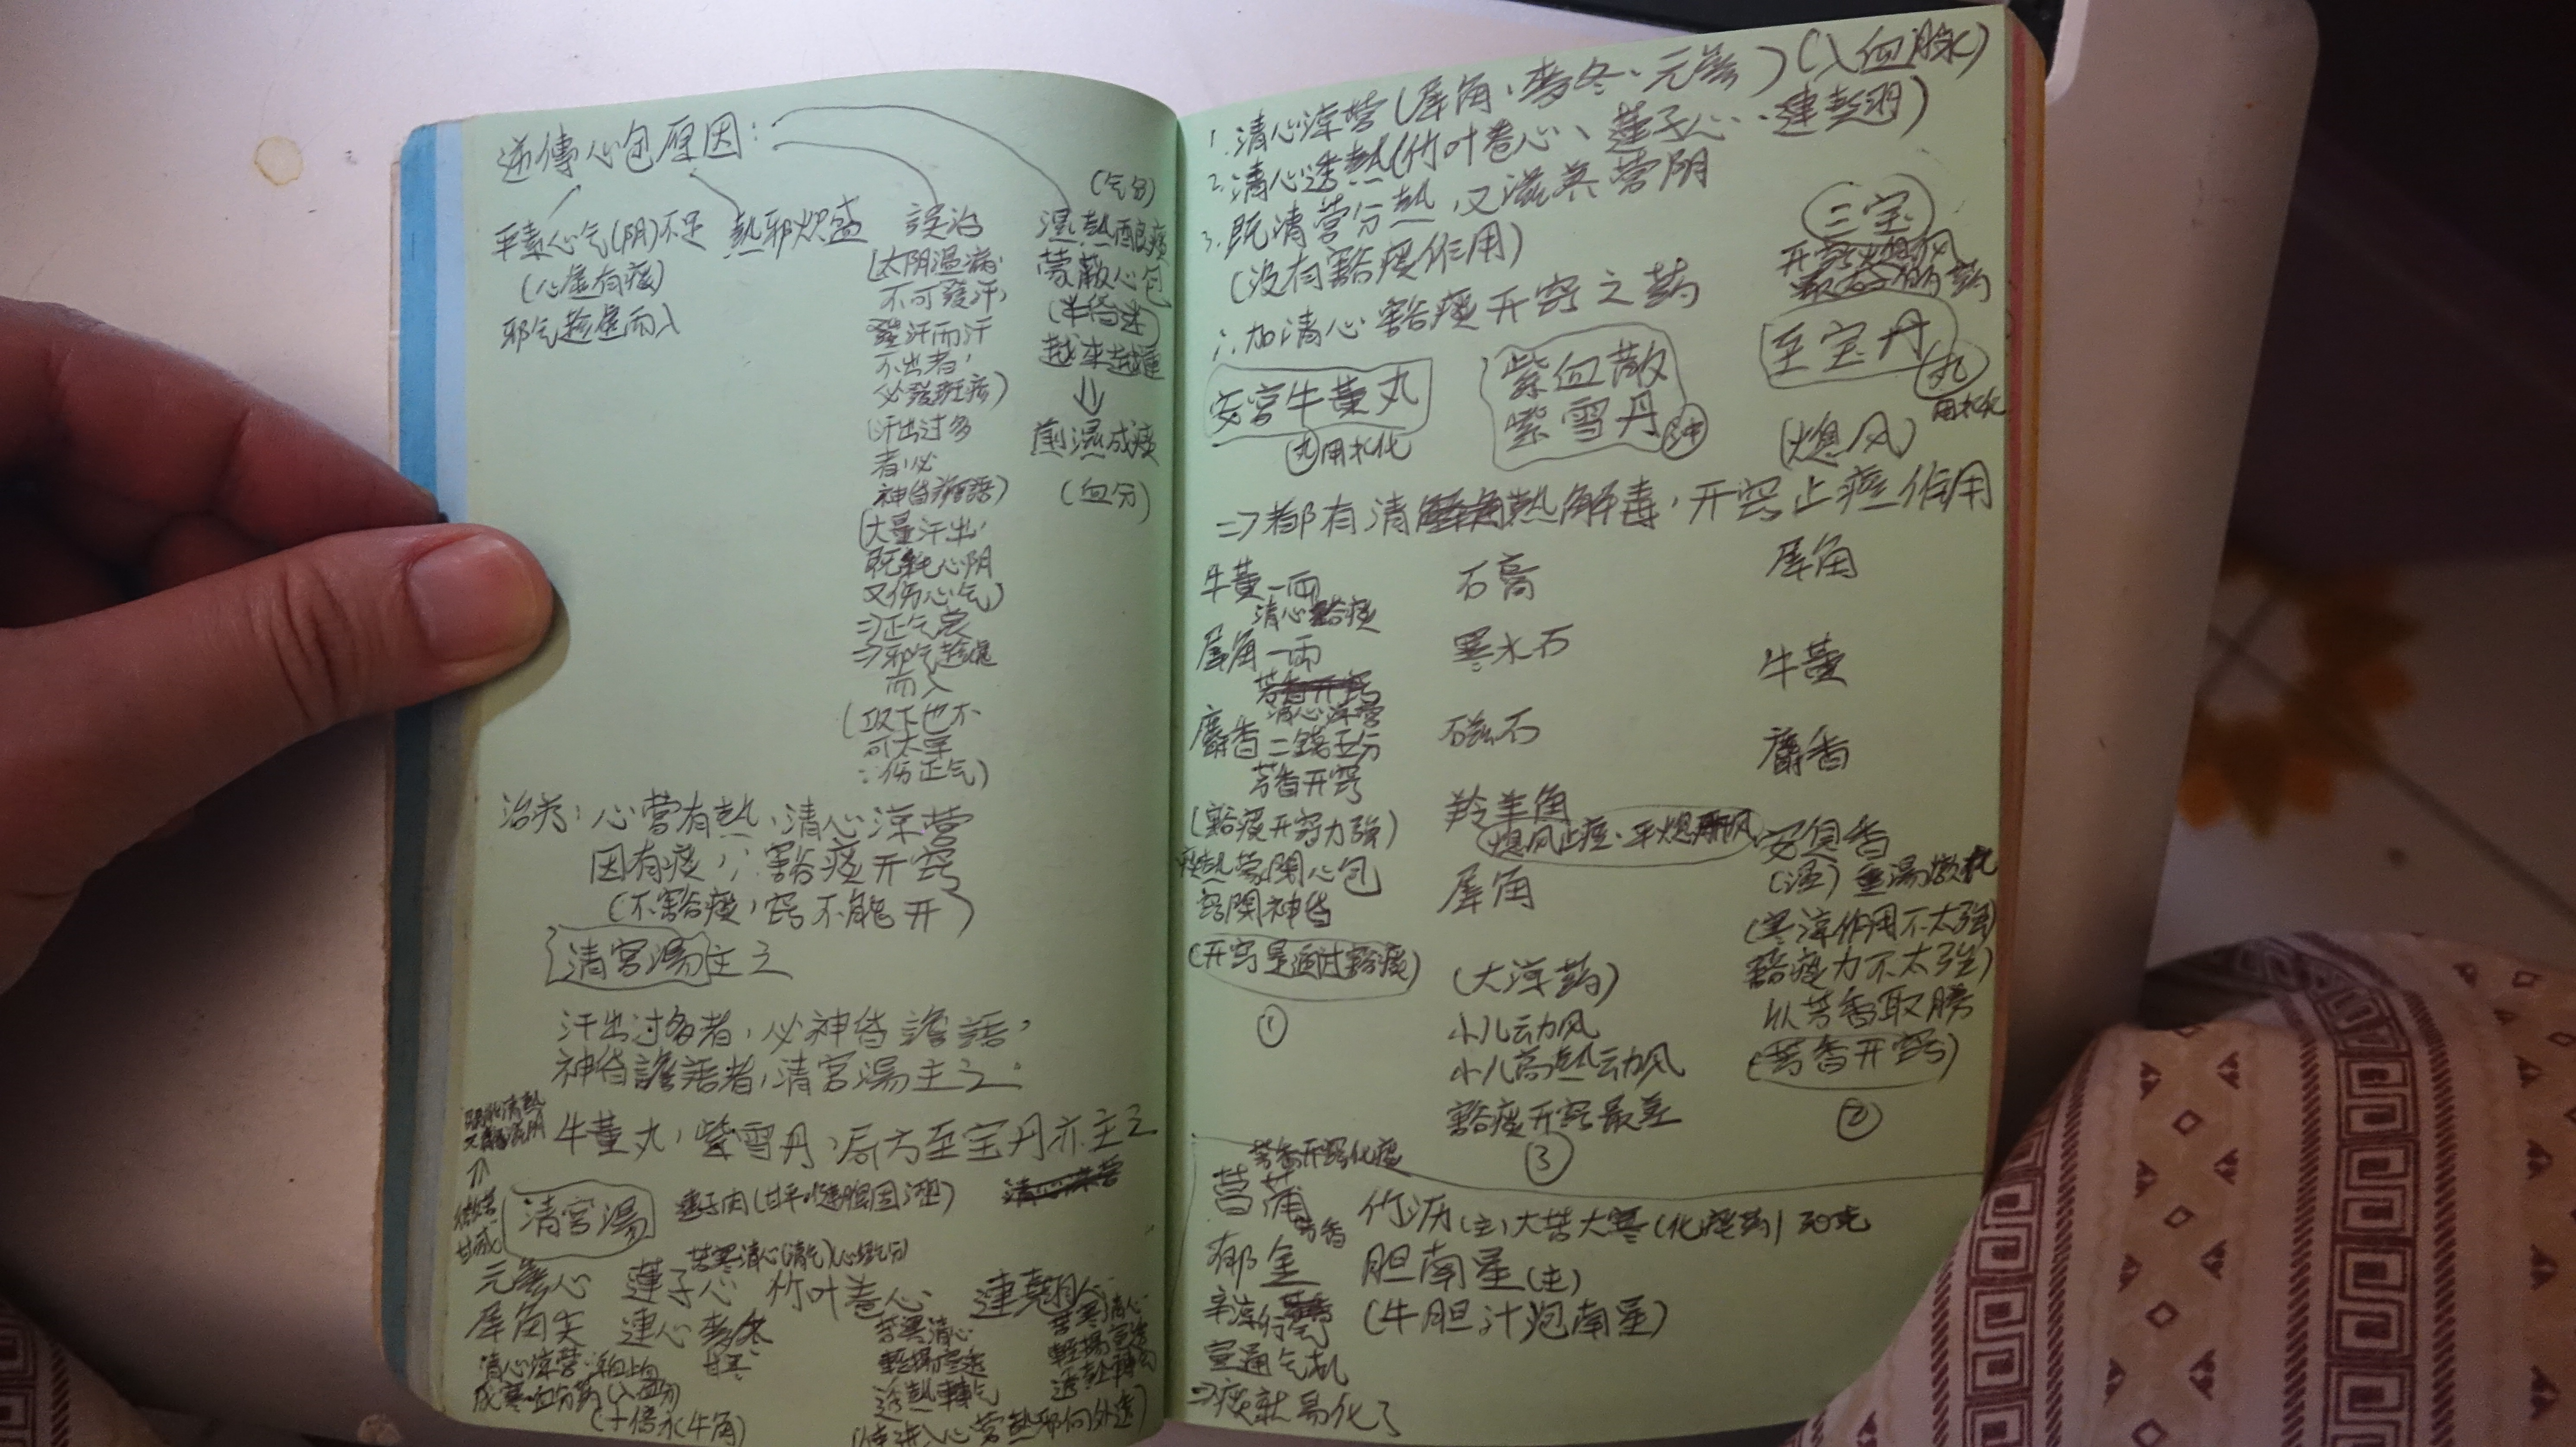 逆傳心包原因：
平素心气(阴)不足
(心虛有痰)
邪气趁虛而入
熱邪炽盛
誤治
(太阴温病，
不可發汗，
發汗而汗
不出者，
必發斑疹)
(汗出过多
者，必
神昏譫語)
(大量汗出，
既耗心阴
又伤心气)
⇒正气衰
⇒邪气趁虛
而入
(攻下也不
可太早
∵伤正气)
(气分)
濕熱酿痰
蒙蔽心包
(半昏迷)
越来越重
⇓
煎濕成痰
(血分)
治类：心营有熱，清心涼营
因有痰，∴豁痰开窍
(不豁痰，窍不能开)
清宮湯主之
汗出过多者，必神昏譫語，
神昏譫語者，清宮湯主之.
牛黄丸，紫雪丹，局方至宝丹亦主之
清宮湯
蓮子肉(甘平 健脾固澀)
苦寒清心(清气)(心经气分)
元参心 蓮子心 竹叶卷心 連翹心
犀角尖 連心麥冬
甘寒
清心涼营
咸寒血分药(入血分)
(十倍水牛角)
苦寒清心
輕揚宣透
透熱轉气
苦寒清心
輕揚宣透
透熱轉气
(使进入心营熱邪向外透)
1.清心涼营(犀角、麥冬、元参)(入血脉)
2.清心透熱(竹叶卷心、蓮子心、連翹)
3.既清营分熱，又滋养营阴
(没有豁痰作用)
∴加清心豁痰开窍之药
三宝
至宝丹
丸
用水化
安宮牛黄丸
丸用水化
紫血散
紫雪丹
(熄风)
⇒都有清熱解毒，开窍止痉作用
牛黄一兩
清心豁痰
犀角一兩
清心涼营
麝香二錢五分
芳香开窍
(豁痰开窍力強)
痰熱蒙閉心包
窍閉神昏
(开窍是通过豁痰)
①
石膏
寒水石
磁石
羚羊角
熄风止痉，平熄肝风
犀角
(大涼药)
小儿动风
小儿高熱动风
豁痰开窍最差
③
犀角
牛黄
麝香
安息香
(涩)重湯燉化
(寒涼作用不太強)
豁痰力不太强)
以芳香取勝
(芳香开窍)
②
芳香开窍化痰
菖蒲
芳香
郁金
辛涼行气
宣通气机
⇒痰就易化了
竹沥(主)大苦大寒(化痰药)50克
胆南星(主)
(牛胆汁泡南星)